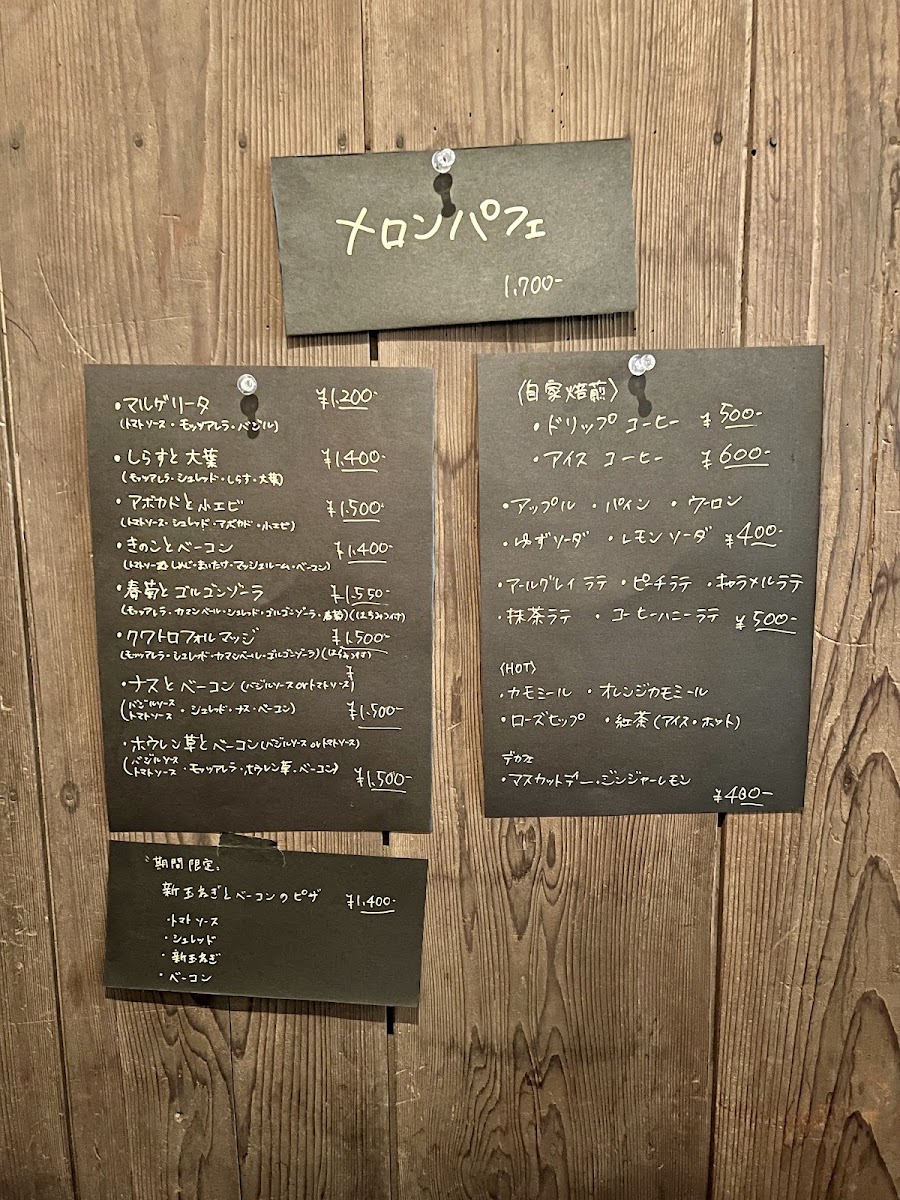 メロンパフェ
1,700-
・マルゲリータ ¥1,200-
(トマトソース・モッツアレラ・バジル)
・しらすと大葉 ¥1,400-
(モッツアレラ・シュレッド・しらす・大葉)
・アボカドと小エビ ¥1,500-
(トマトソース・シュレッド・アボカド・小エビ)
・きのことベーコン ¥1,400-
(トマトソース・しめじ・まいたけ・マッシュルーム・ベーコン)
・春菊とゴルゴンゾーラ ¥1,550-
(モッツアレラ・カマンベール・シュレッド・ゴルゴンゾーラ・春菊)(はちみつ付)
・クワトロフォルマッジ ¥1,500-
(モッツアレラ・シュレッド・カマンベール・ゴルゴンゾーラ)(はちみつ付)
・ナスとベーコン(バジルソースorトマトソース)
(バジルソース
トマトソース・シュレッド・ナス・ベーコン) ¥1,500-
・ホウレン草とベーコン(バジルソースorトマトソース)
(バジルソース
トマトソース・モッツアレラ・ホウレン草・ベーコン) ¥1,500-
〝期間限定〟
新玉ねぎとベーコンのピザ ¥1,400-
・トマトソース
・シュレッド
・新玉ねぎ
・ベーコン
〈自家焙煎〉
・ドリップコーヒー ¥500-
・アイスコーヒー ¥600-
・アップル ・パイン ・ウーロン
・ゆずソーダ ・レモンソーダ ¥400-
・アールグレイラテ ・ピーチラテ ・キャラメルラテ
・抹茶ラテ ・コーヒーハニーラテ ¥500-
〈HOT〉
・カモミール ・オレンジカモミール
・ローズヒップ ・紅茶(アイス・ホット)
デカフェ
・マスカットデー・ジンジャーレモン
¥400-